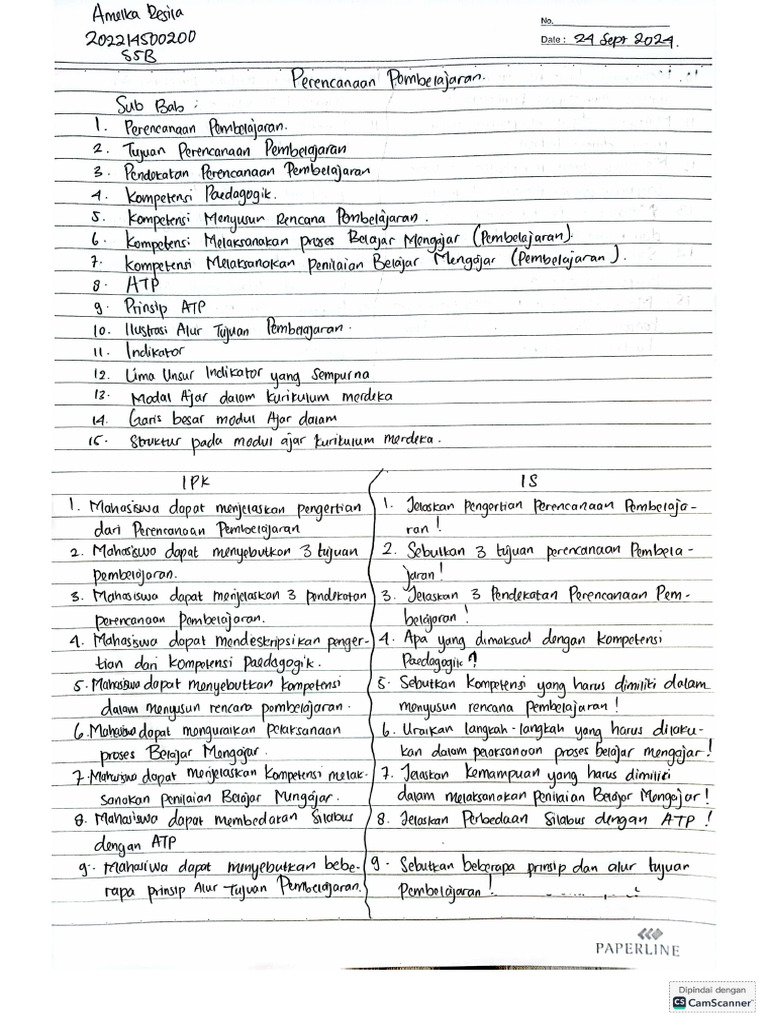 Amelka Resira
202214500200
S5B
No.
Date : 24 Sept 2024.
Perencanaan Pembelajaran.
Sub Bab :
1. Perencanaan Pembelajaran.
2. Tujuan Perencanaan Pembelajaran
3. Pendekatan Perencanaan Pembelajaran
4. Kompetensi Paedagogik.
5. Kompetensi Menyusun Rencana Pembelajaran.
6. Kompetensi Melaksanakan proses Belajar Mengajar (Pembelajaran).
7. Kompetensi Melaksanakan Penilaian Belajar Mengajar (Pembelajaran).
8. ATP
9. Prinsip ATP
10. Ilustrasi Alur Tujuan Pembelajaran.
11. Indikator
12. Lima Unsur Indikator yang Sempurna
13. Modal Ajar dalam Kurikulum merdeka
14. Garis besar modul Ajar dalam
15. Struktur pada modul ajar kurikulum merdeka.
IPK
1. Mahasiswa dapat menjelaskan pengertian
dari Perencanaan Pembelajaran
2. Mahasiswa dapat menyebutkan 3 tujuan
pembelajaran.
3. Mahasiswa dapat menjelaskan 3 pendekatan
perencanaan Pembelajaran.
4. Mahasiswa dapat mendeskripsikan penger-
tian dari kompetensi Paedagogik.
5. Mahasiswa dapat menyebutkan kompetensi
dalam menyusun rencana pembelajaran.
6. Mahasiswa dapat menguraikan pelaksanaan
proses Belajar Mengajar.
7. Mahasiswa dapat menjelaskan kompetensi melak-
sanakan penilaian Belajar Mengajar.
8. Mahasiswa dapat membedakan Silabus
dengan ATP
9. Mahasiwa dapat menyebutkan bebe-
rapa prinsip Alur Tujuan Pembelajaran.
IS
1. Jelaskan pengertian Perencanaan Pembelaja-
ran!
2. Sebutkan 3 tujuan perencanaan Pembela-
jaran!
3. Jelaskan 3 Pendekatan Perencanaan Pem-
belajaran!
4. Apa yang dimaksud dengan kompetensi
Paedagogik?
5. Sebutkan kompetensi yang harus dimiliki dalam
menyusun rencana Pembelajaran!
6. Uraikan langkah-langkah yang harus dilaku-
kan dalam pelaksanaan proses belajar mengajar!
7. Jelaskan kemampuan yang harus dimiliki
dalam melaksanakan Penilaian Belajar Mengajar!
8. Jelaskan Perbedaan Silabus dengan ATP!
9. Sebutkan beberapa prinsip dan alur tujuan
Pembelajaran!
PAPERLINE
Dipindai dengan
CS CamScanner